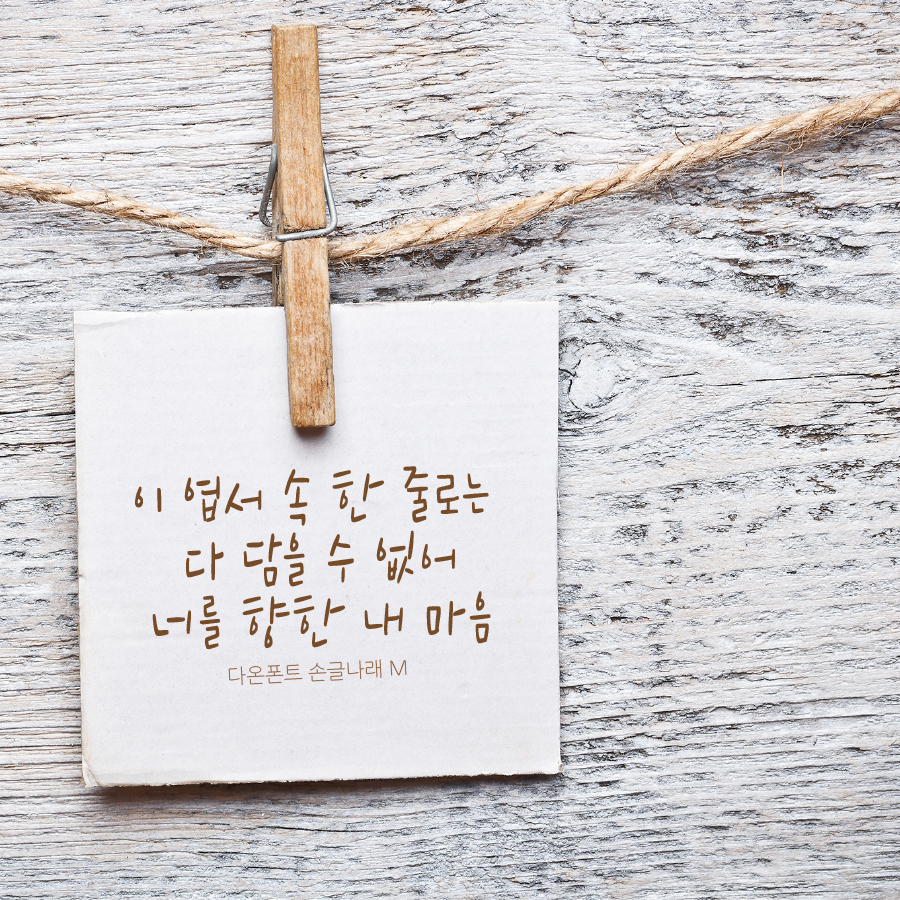 이 엽서 속 한 줄로는
다 담을 수 없어
너를 향한 내 마음
다온폰트 손글나래 M